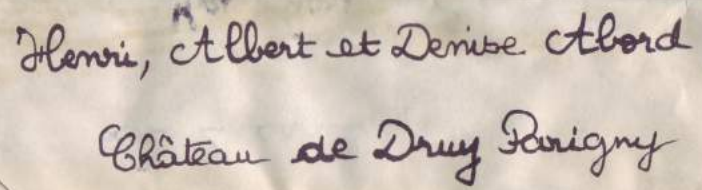 Henri, Albert et Denise Abord
Château de Druy Parigny